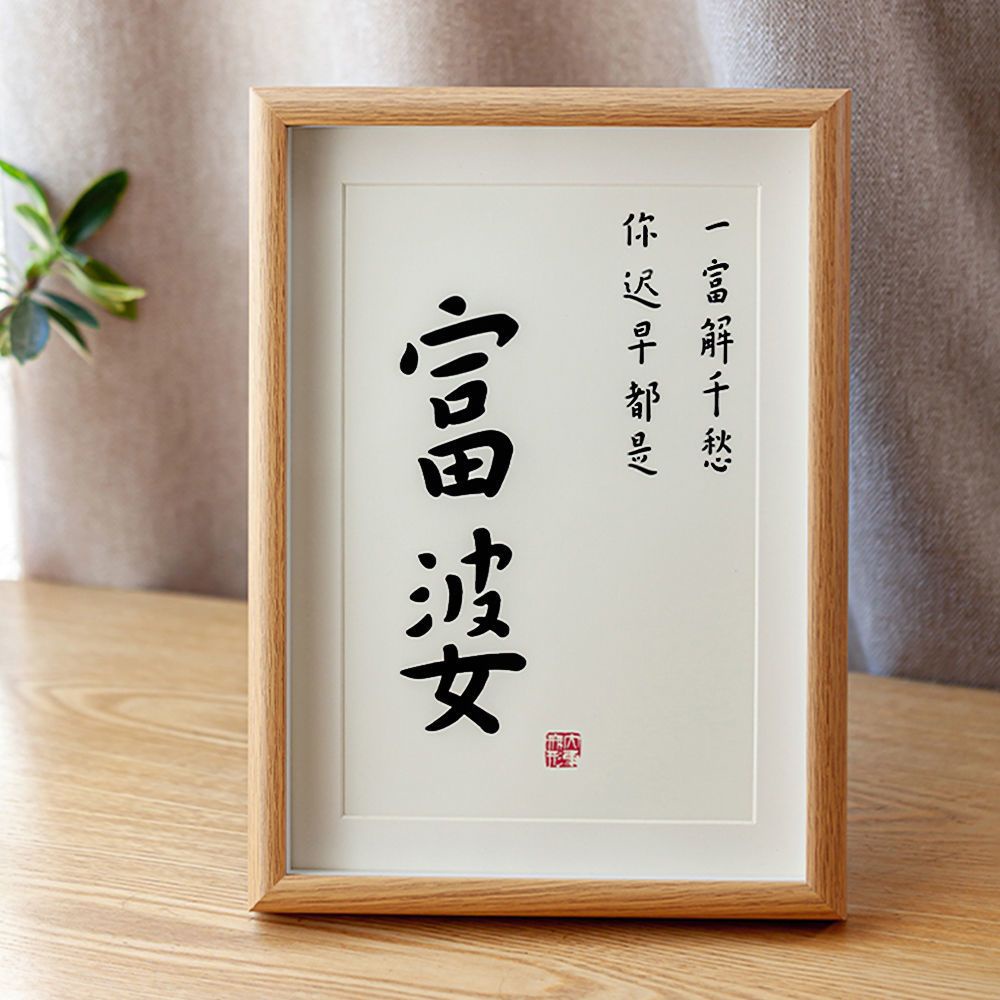 一富解千愁
你迟早都是
富婆